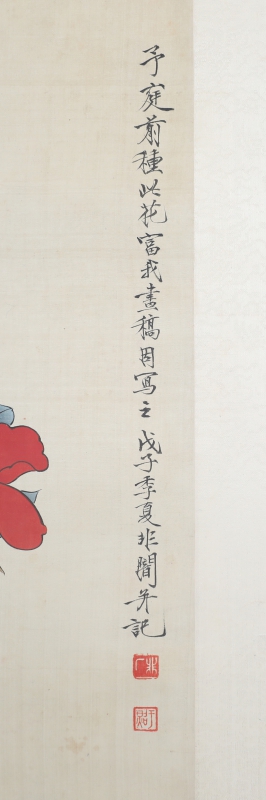 予庭前種此花富我畫稿因寫之戊子季夏非闇并記